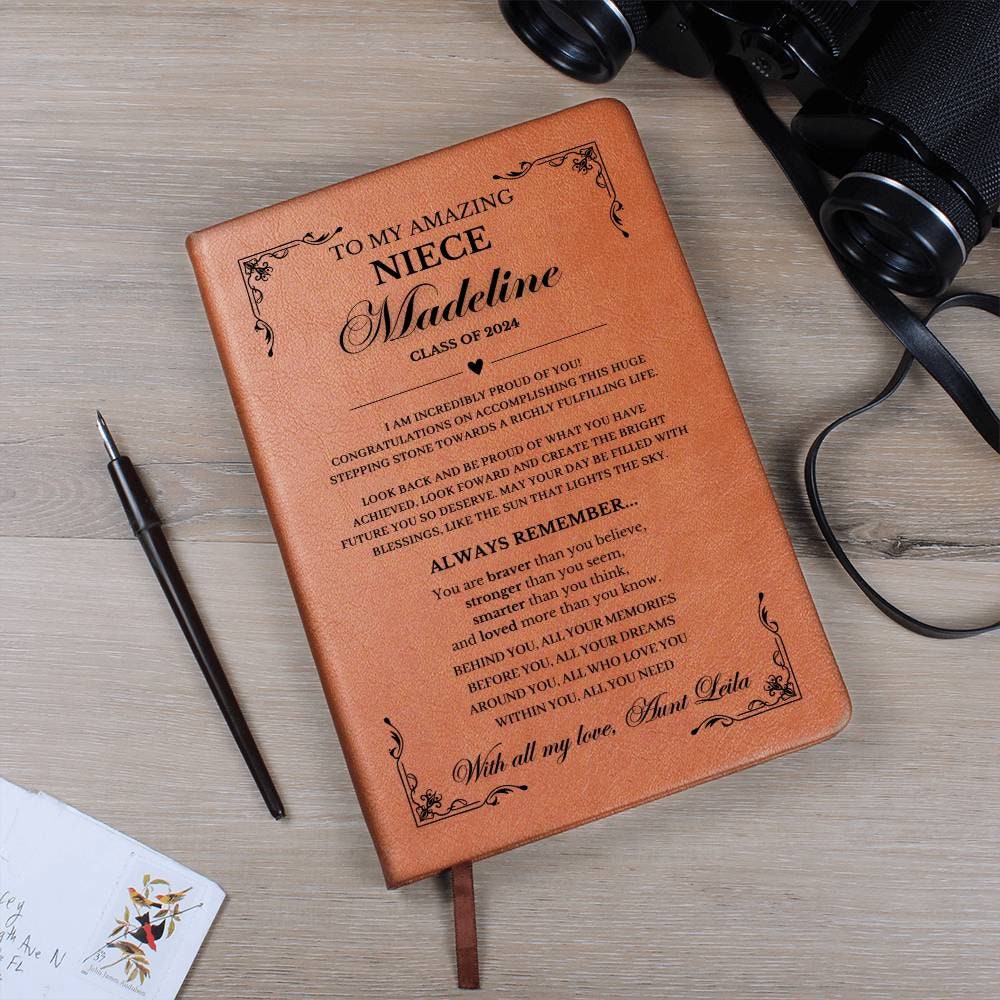 TO MY AMAZING
NIECE
Madeline
CLASS OF 2024
I AM INCREDIBLY PROUD OF YOU!
CONGRATULATIONS ON ACCOMPLISHING THIS HUGE
STEPPING STONE TOWARDS A RICHLY FULFILLING LIFE.
LOOK BACK AND BE PROUD OF WHAT YOU HAVE
ACHIEVED, LOOK FOWARD AND CREATE THE BRIGHT
FUTURE YOU SO DESERVE. MAY YOUR DAY BE FILLED WITH
BLESSINGS, LIKE THE SUN THAT LIGHTS THE SKY.
ALWAYS REMEMBER...
You are braver than you believe,
stronger than you seem,
smarter than you think,
and loved more than you know.
BEHIND YOU, ALL YOUR MEMORIES
BEFORE YOU, ALL YOUR DREAMS
AROUND YOU, ALL WHO LOVE YOU
WITHIN YOU, ALL YOU NEED
With all my love, Aunt Leila
Ave N
FL
37
John James Audubon